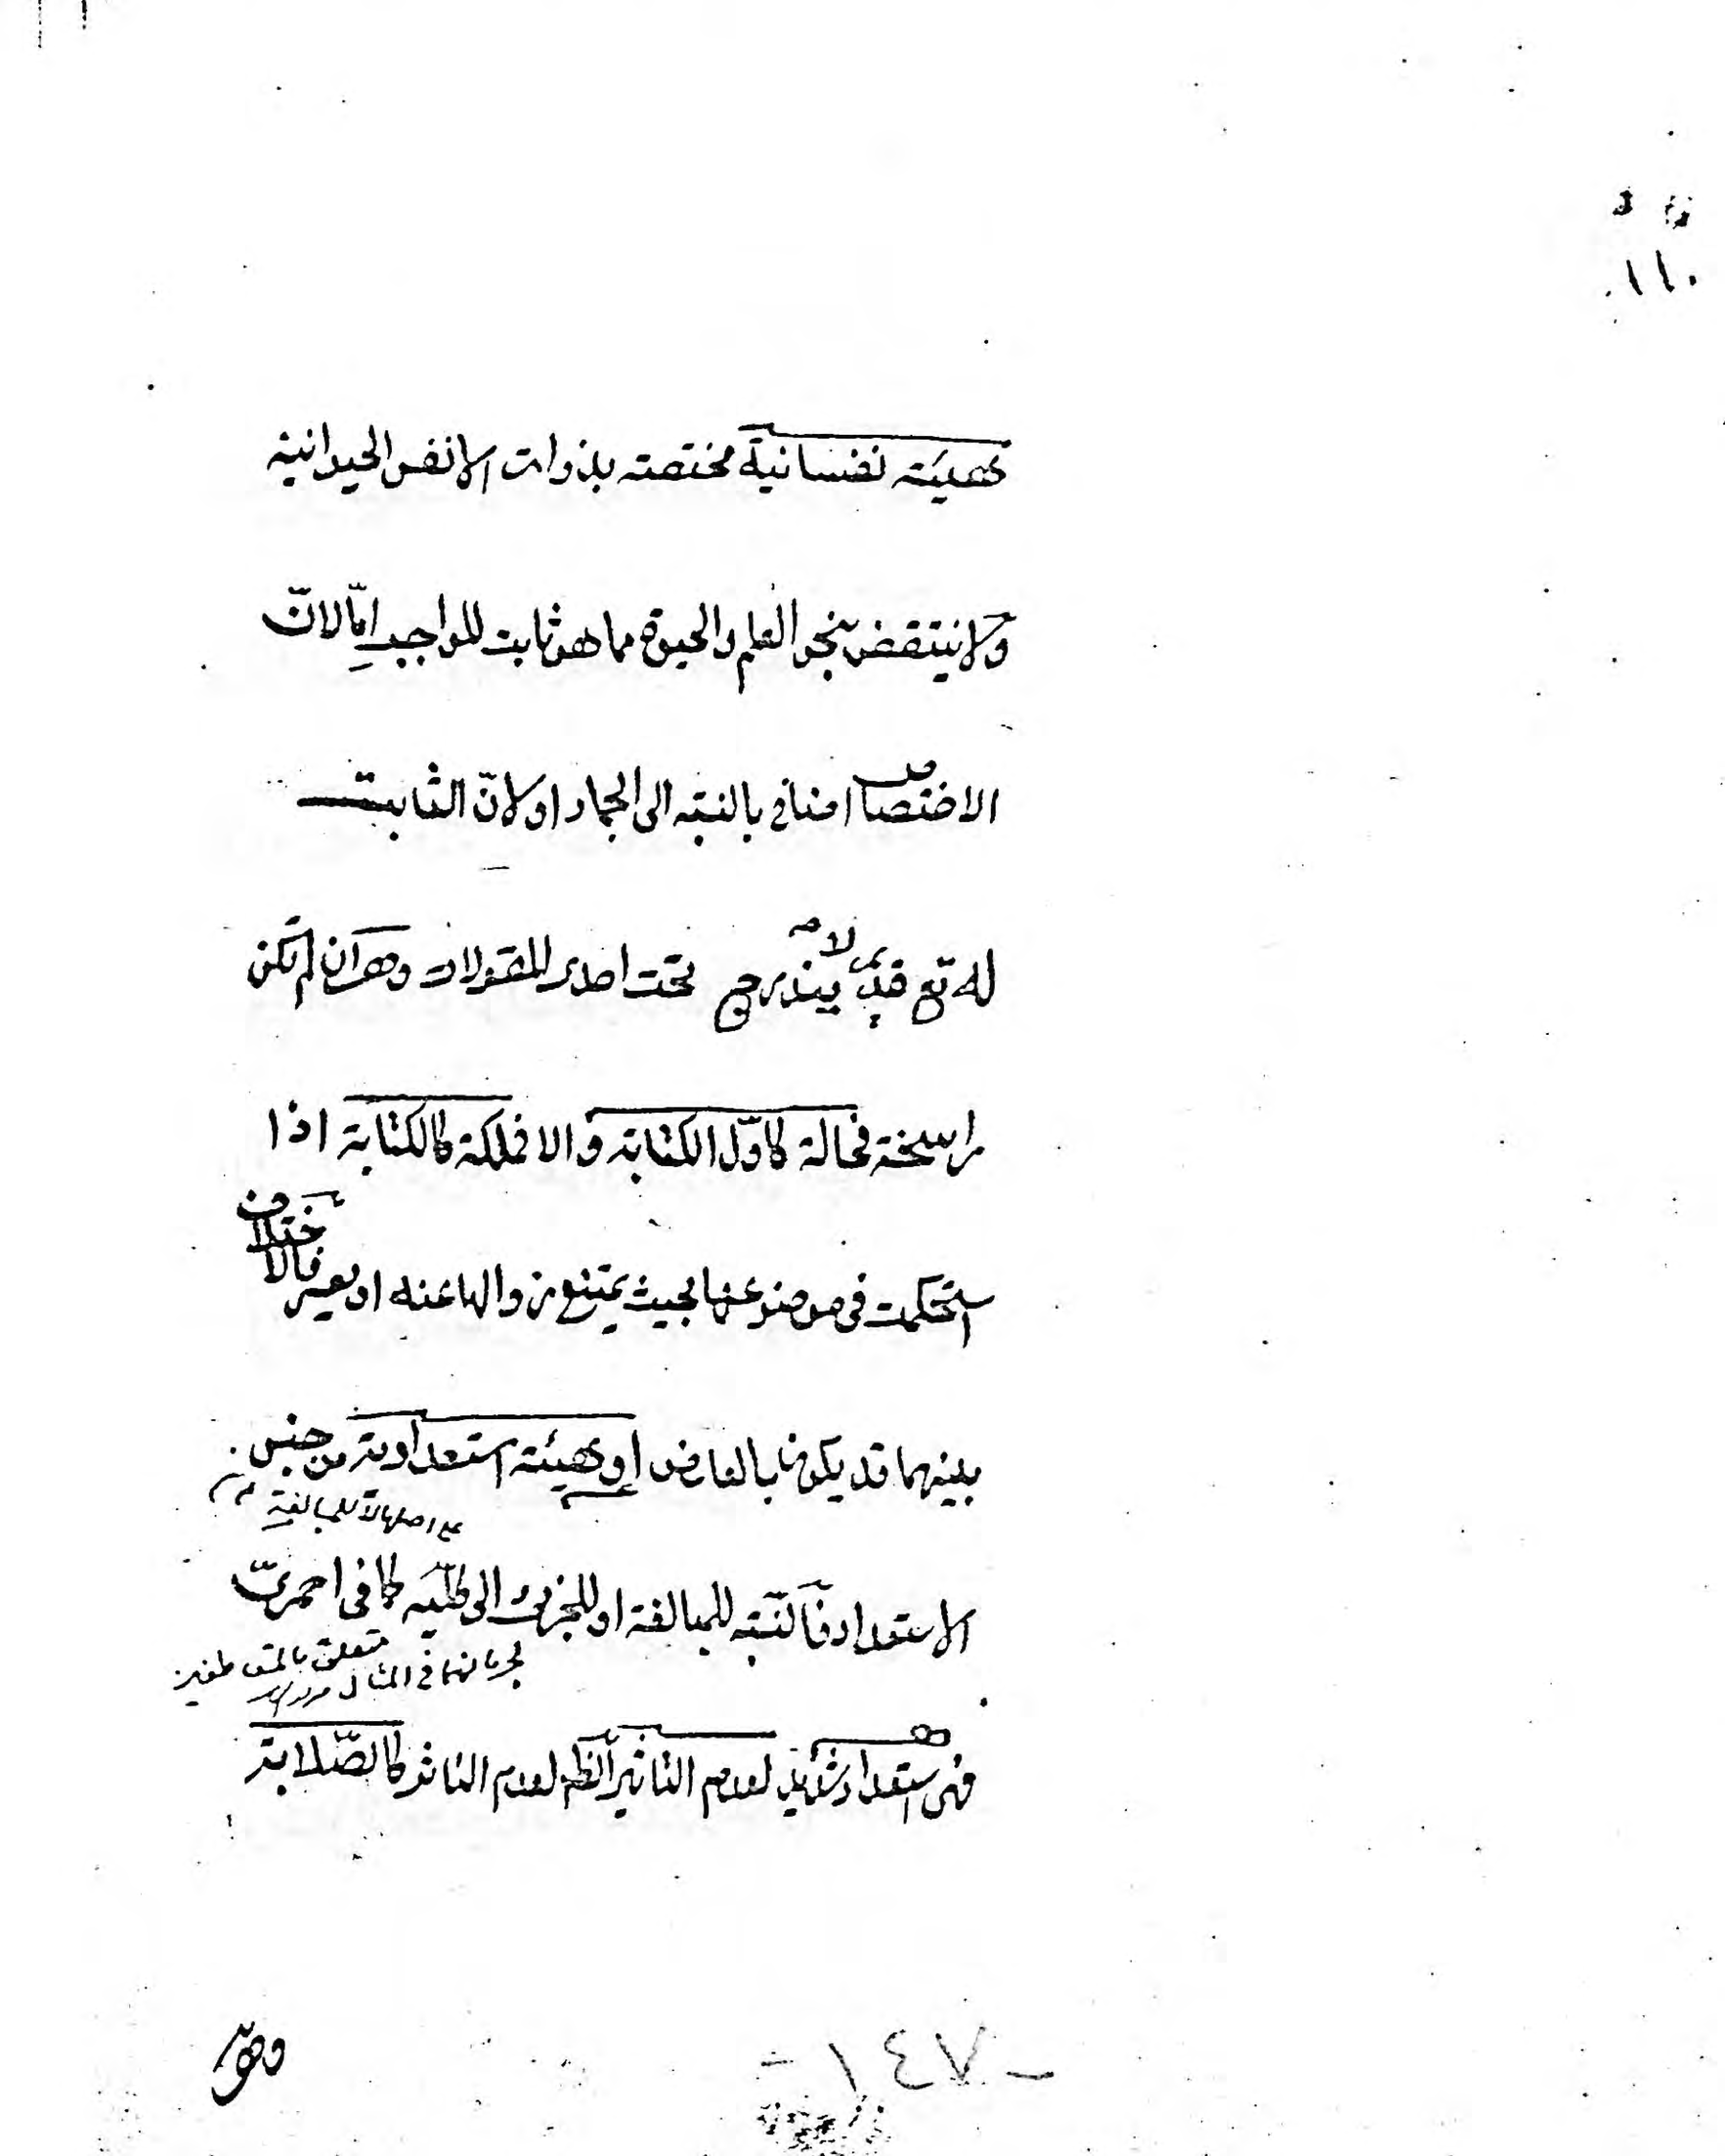 ١١٠
كهيئة نفسانية مختصة بذوات الانفس الحيوانية
ولا ينتقض بنحو العلم والحيوة مما هو ثابت للواجب امّا لانّ
الاختصاص اضافى بالنسبة الى الجماد او لانّ الثابت
له تع قديم لا يندرج تحت احدى المقولات وهى ان لم تكن
راسخة فحالة كاوّل الكتابة والا فملكة كالكتابة اذا
استحكمت فى موضوعها بحيث يمتنع زوالها عنه او يعسر فالاختلاف
بينهما قد يكون بالعارض او كهيئة استعدادية من جنس
على اصلها لا للمبالغة
الاستعداد فالنسبة للمبالغة او للجزئى الى كليّه كما فى احمرىّ
فى المثال متعلق بالمنفى
فهى استعداد شديد لعدم التاثير الظ لعدم التاثر كالصّلابة
وهو
- ١٤٧ -